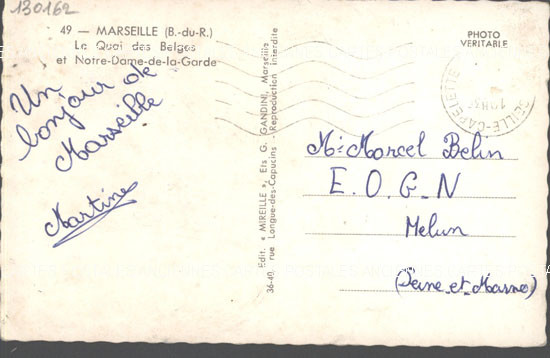 130162
49 — MARSEILLE (B.-du-R.)
Le Quai des Belges
et Notre-Dame-de-la-Garde
Un
bonjour de
Marseille
Martine
Edit. « MIREILLE », Ets G. GANDINI, Marseille
36-40, rue Longue-des-Capucins - Reproduction interdite
PHOTO
VERITABLE
SEILLE-CAPELETTE
Mr Marcel Belin
E.O.G.N
Melun
(Seine-et-Marne)